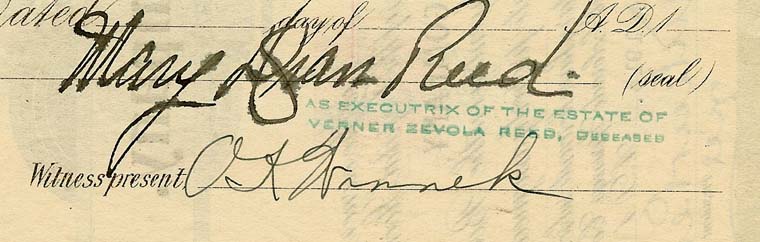 Dated day of A.D. 1
Mary Dean Reed. (seal)
AS EXECUTRIX OF THE ESTATE OF
VERNER ZEVOLA REED, DECEASED
Witness present,